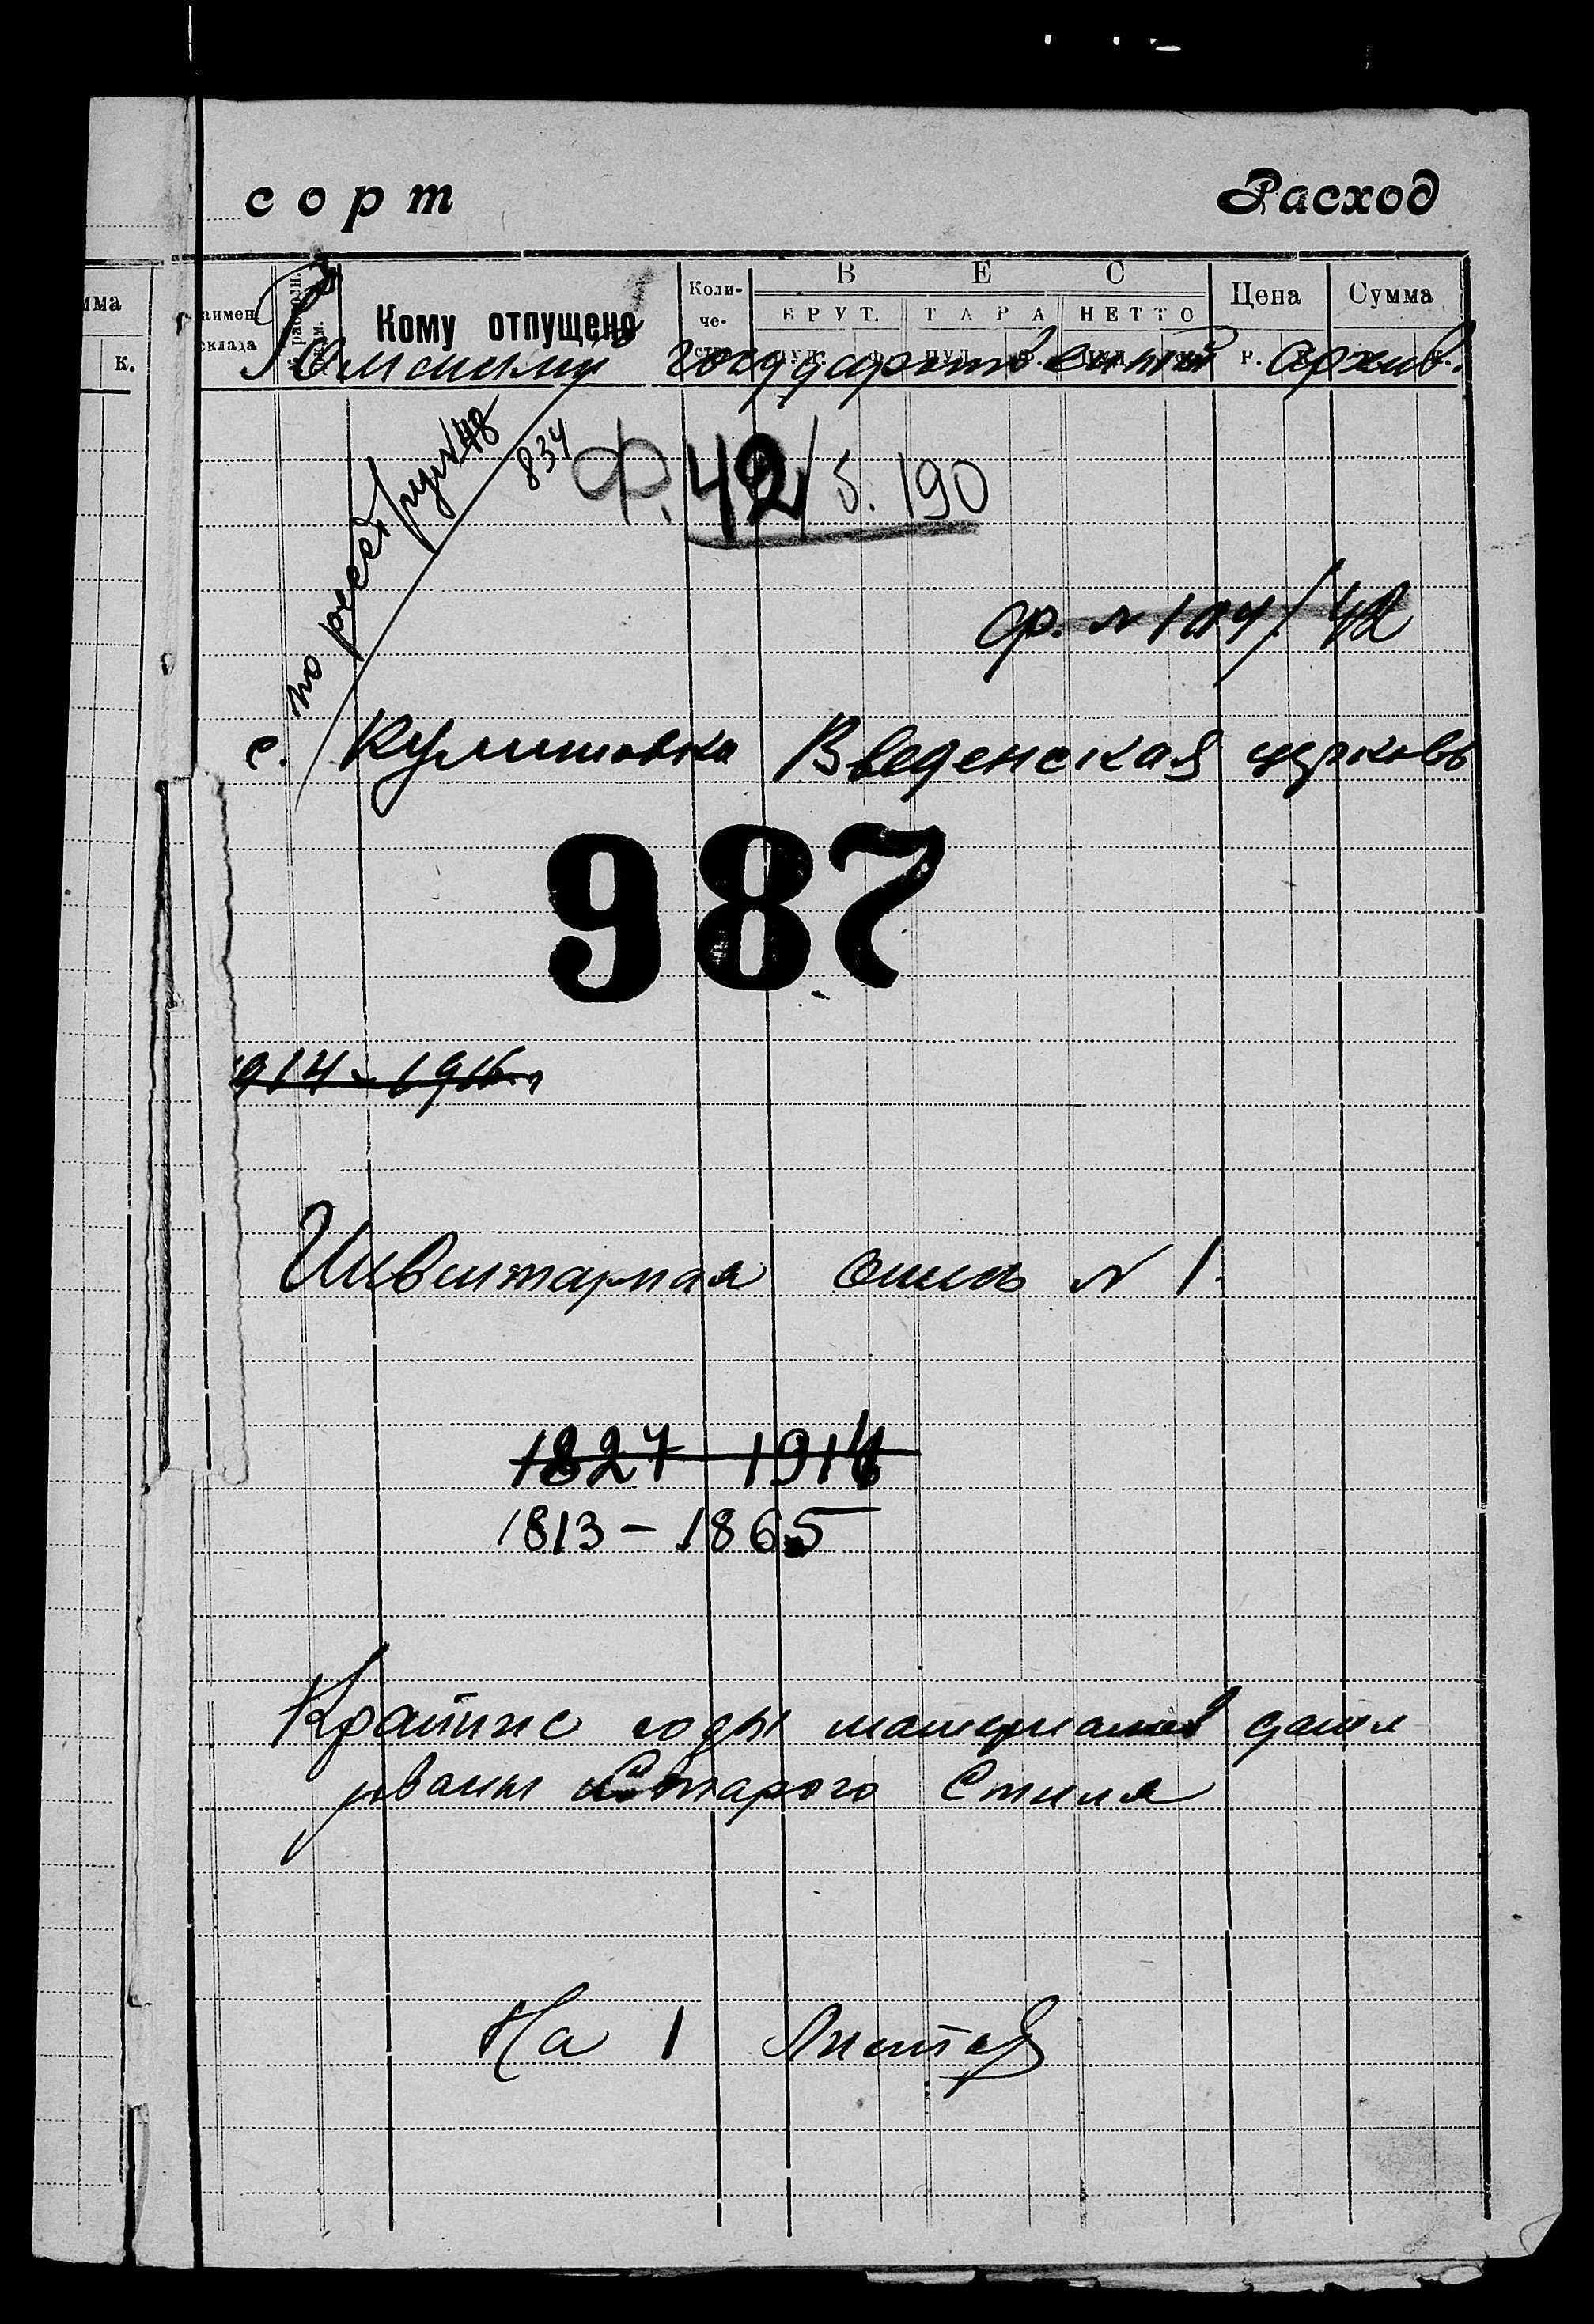 сорт Расход
мма
к.
аимен.
склада
Кому отпущено
Коли-
че-
ств.
В Е С
БРУТ. ТАРА НЕТТО
Цена
Сумма
Роменский государственный архив.
по реестру №48
834
Ф. 42/5. 190
ф. № 104/42
с. Кулишовка Введенская церковь
987
914 - 1916
Инвентарная опись № 1.
1827 1914
1813 - 1865
Крайние годы материалов дати
рованы Старого Стиля
На 1 листах